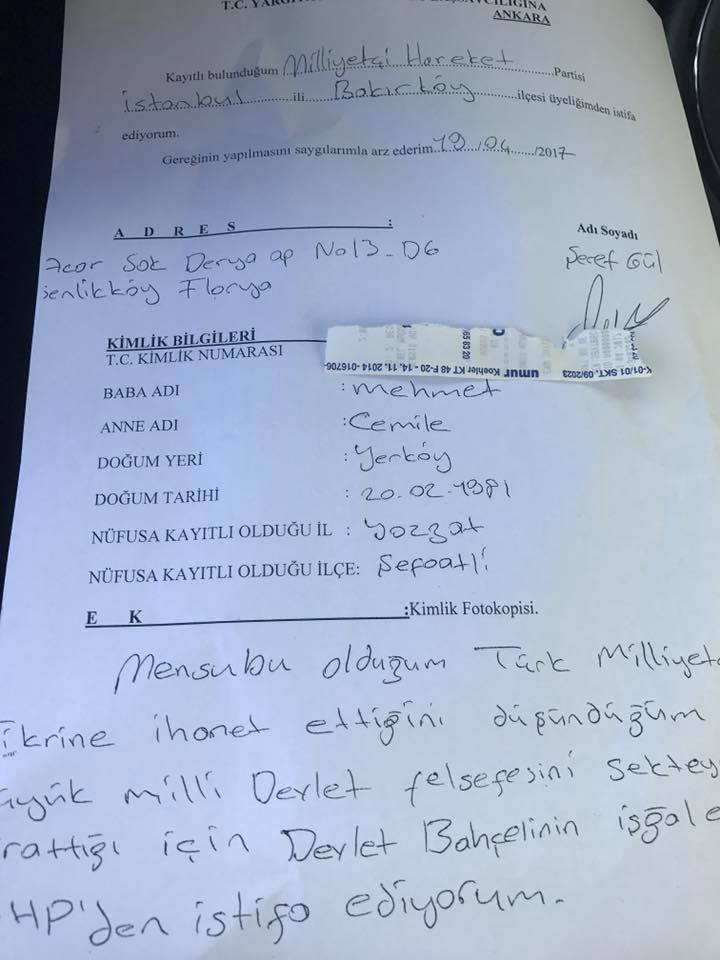 ANKARA
Kayıtlı bulunduğum Milliyetçi Hareket Partisi
İstanbul ili Bakırköy ilçesi üyeliğimden istifa
ediyorum.
Gereğinin yapılmasını saygılarımla arz ederim. 19/04/2017
A D R E S :
Adı Soyadı
Acar Sok Derya ap No13-D6
Şenlikköy Florya
Şeref Gül
KİMLİK BİLGİLERİ
T.C. KİMLİK NUMARASI
K-01/01 SKT. 09/2023 umur Koehler KT 48 F-20 - 14. 11. 2014 -016706-
BABA ADI : Mehmet
ANNE ADI : Cemile
DOĞUM YERİ : Yerköy
DOĞUM TARİHİ : 20.02.1981
NÜFUSA KAYITLI OLDUĞU İL : Yozgat
NÜFUSA KAYITLI OLDUĞU İLÇE: Şefaatli
E K :Kimlik Fotokopisi.
Mensubu olduğum Türk Milliyet
ikrine ihanet ettiğini düşündüğüm
üyük milli Devlet felsefesini sektey
rattığı için Devlet Bahçelinin işgale
HP'den istifa ediyorum.